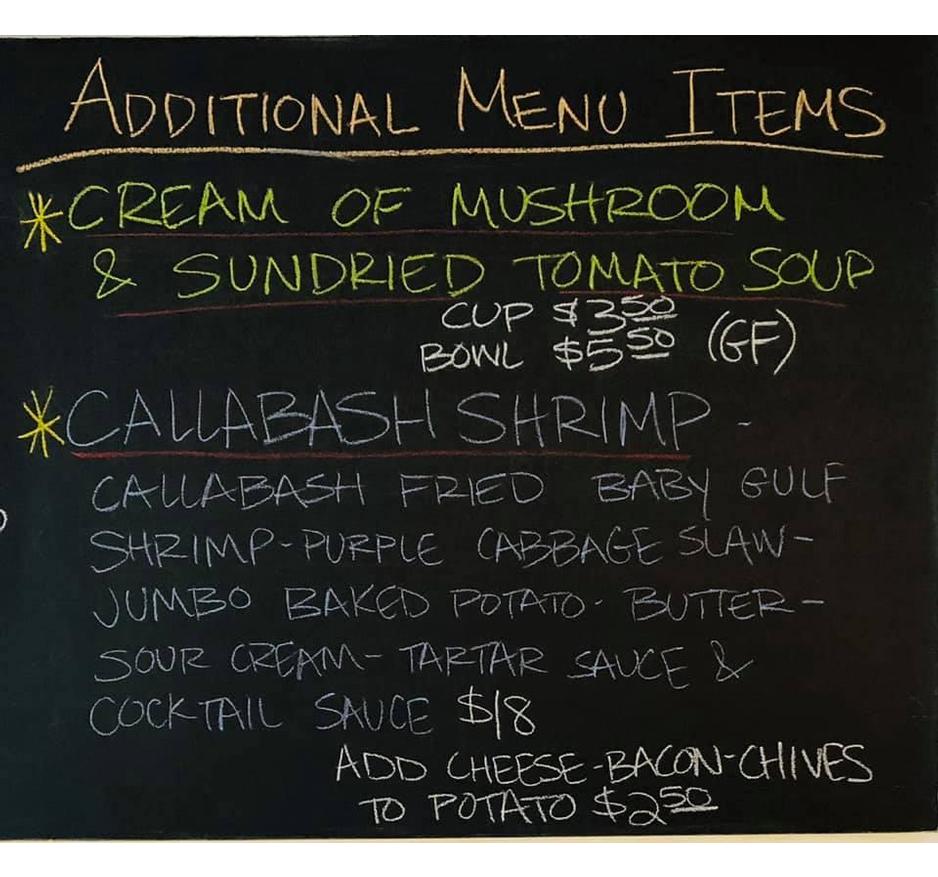 ADDITIONAL MENU ITEMS
*CREAM OF MUSHROOM
& SUNDRIED TOMATO SOUP
CUP $3.50
BOWL $5.50 (GF)
*CALLABASH SHRIMP -
CALLABASH FRIED BABY GULF
SHRIMP-PURPLE CABBAGE SLAW-
JUMBO BAKED POTATO- BUTTER-
SOUR CREAM- TARTAR SAUCE &
COCKTAIL SAUCE $18
ADD CHEESE-BACON-CHIVES
TO POTATO $2.50